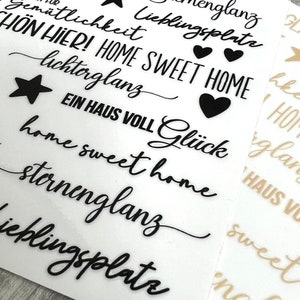 Gemütlichkeit
sternenglanz
Lieblingsplatz
SCHÖN HIER!
HOME SWEET HOME
lichterglanz
EIN HAUS VOLL Glück
home sweet home
sternenglanz
Lieblingsplatz
HAUS VOLL
sweet